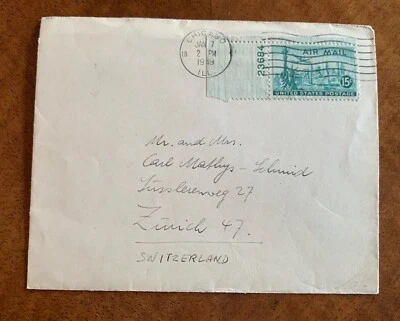 CHICAGO
JAN 7
2 PM
1949
ILL.
23684
AIR MAIL
15¢
UNITED STATES POSTAGE
Mr. and Mrs.
Carl Mathys-Schmid
Füsslerenweg 27
Zürich 47.
SWITZERLAND